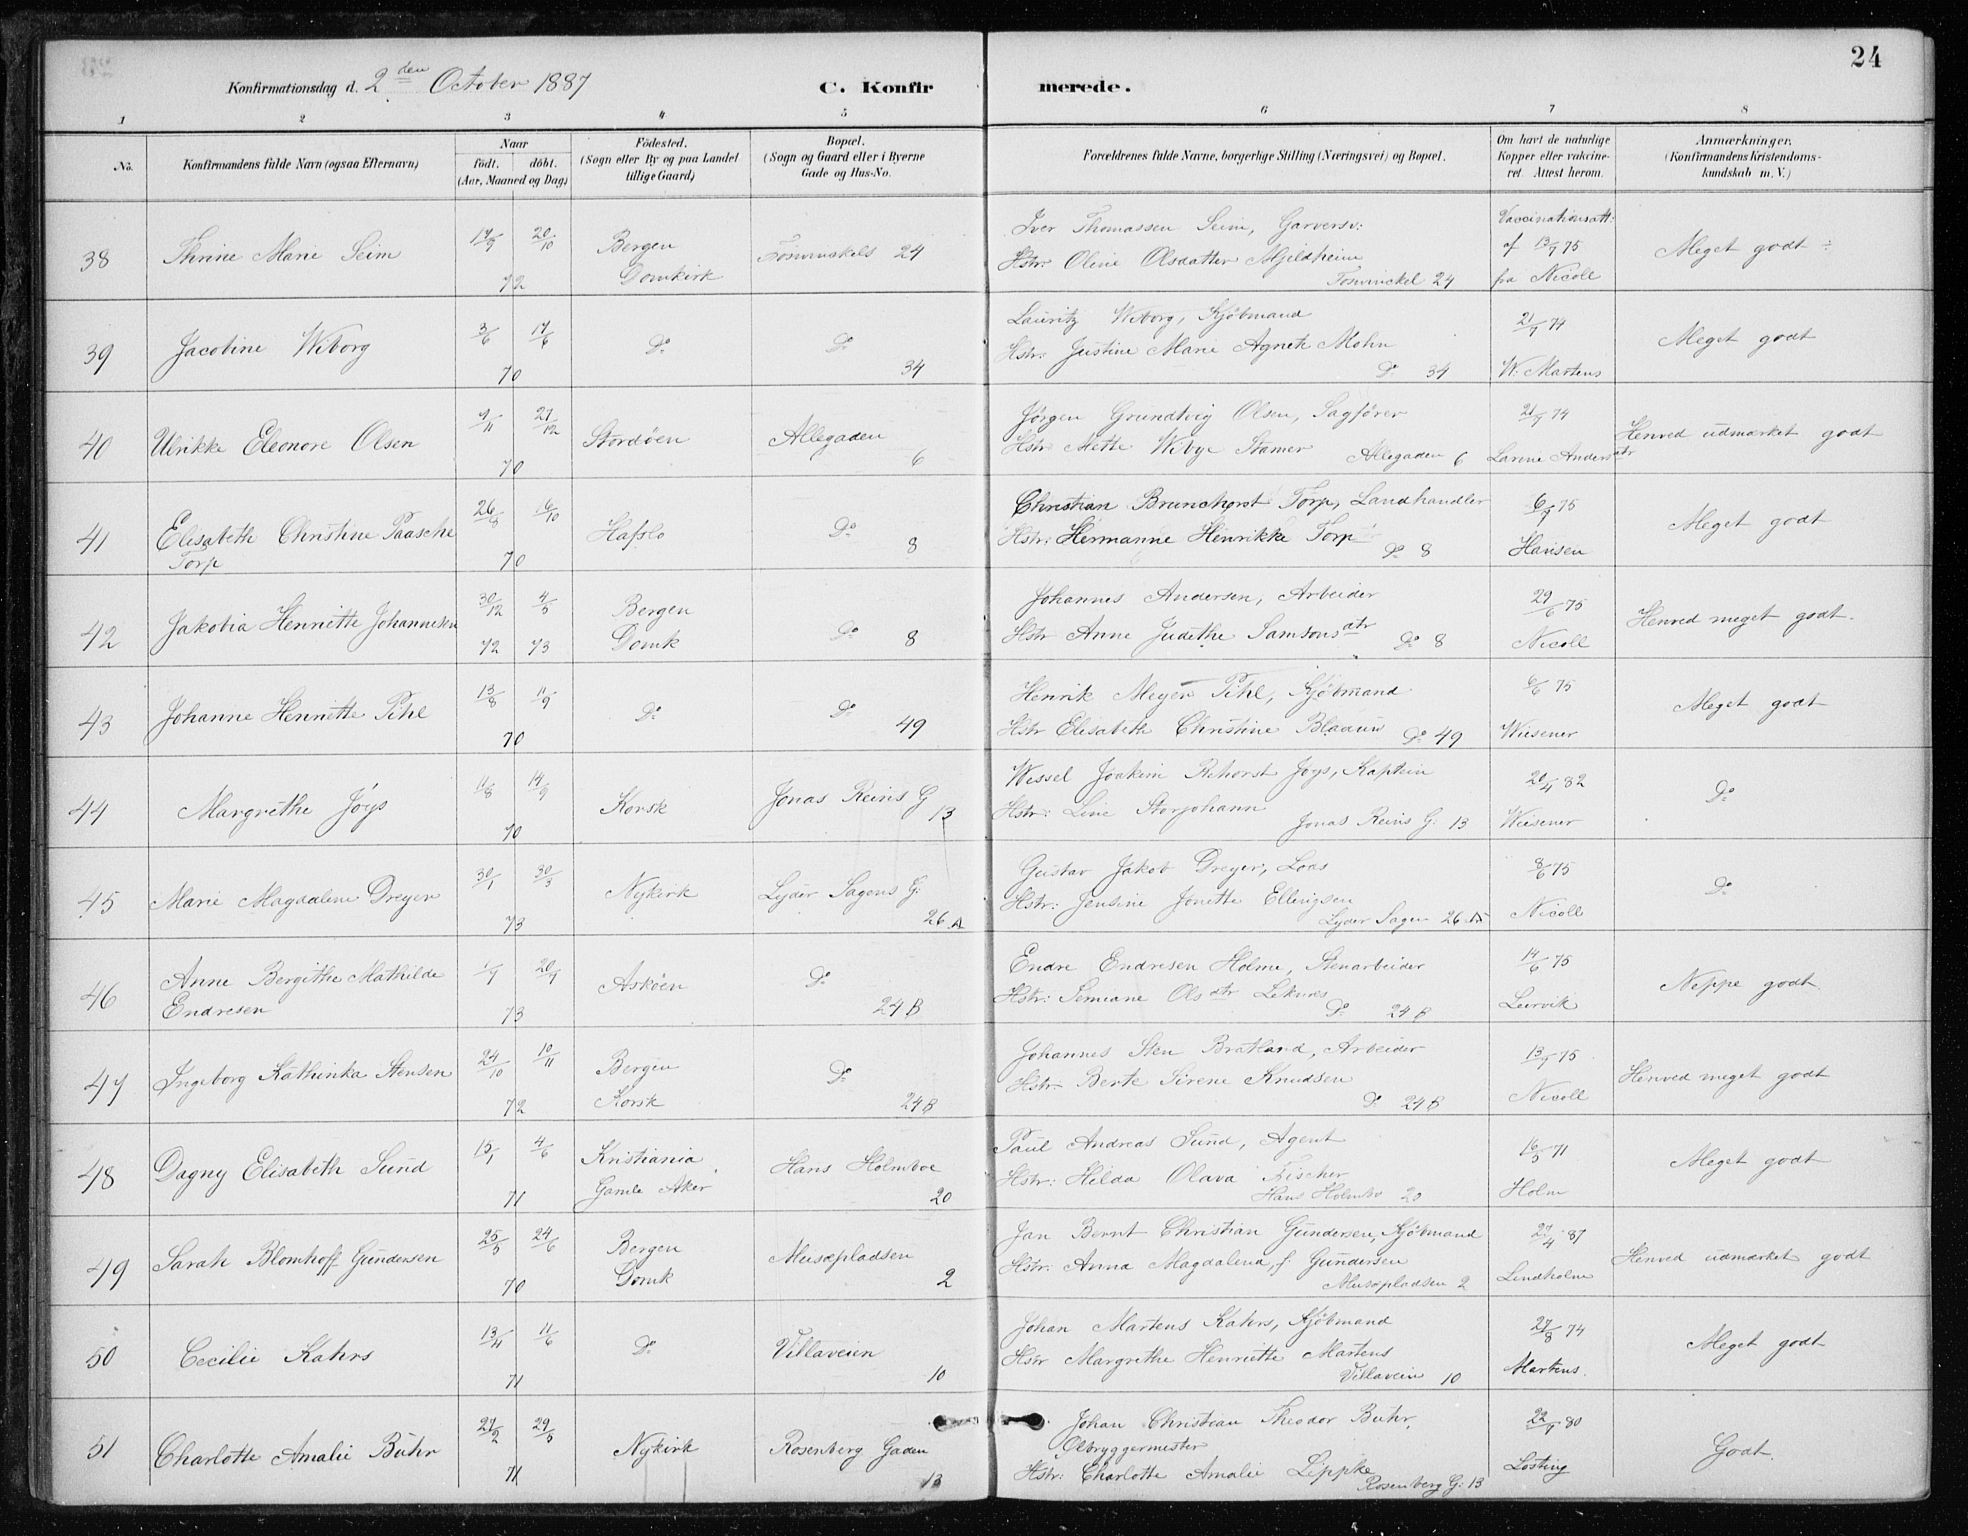 24
Konfirmationsdag d. 2den October 1887
C. Konfir merede.
1 2 3 4 5 6 7 8
No. Konfirmandens fulde Navn (ogsaa Efternavn)
Naar födt. döbt. (Aar, Maaned og Dag)
Födested. (Sogn eller By og paa Landet tillige Gaard)
Bopæl. (Sogn og Gaard eller i Byerne Gade og Hus-No.
Forældrenes fulde Navne, borgerlige Stilling (Næringsvei) og Bopæl.
Om havt de naturlige Kopper eller vakcineret. Attest herom.
Anmærkninger. (Konfirmandens Kristendomskundskab m. V.)
38 Thrine Marie Seim 17/9 20/10 72 Bergen Domkirk 24
Iver Thomassen Seim, Garversv:
Hstr: Oline Olsdatter Mjeldheim 24
Vaccinationsatt: af 13/9 75 fra Nicoll
Meget godt ÷
39 Jacobine Wiborg 3/6 17/6 70 Do Do 34
Lauritz Wiborg, Kjöbmand
Hstr: Justine Marie Agnete Mohn Do 34
21/7 74 W. Martens
Meget godt
40 Ulrikke Eleonore Olsen 9/11 27/12 70 Stordöen Allegaden 6
Jørgen Grundtvig Olsen, Sagfører
Hstr: Mette Wibye Stamer Allegaden 6
21/9 74 Larine Andersdtr
Henved udmærket godt
41 Elisabeth Christine Paasche Torp 26/8 16/10 70 Hafslo Do 8
Christian Brunchorst Torp, Landhandler
Hstr: Hermanne Henrikke Torp Do 8
6/9 75 Hansen
Meget godt
42 Jakobia Henriette Johannesen 30/12 72 4/5 73 Bergen Domk Do 8
Johannes Andersen, Arbeider
Hstr Anne Judithe Samsonsdtr Do 8
29/6 75 Nicoll
Henved meget godt.
43 Johanne Henriette Pihl 13/8 11/9 70 Do Do 49
Henrik Meyer Pihl, Kjöbmand
Hstr Elisabeth Christine Blaauw Do 49
6/6 75 Wiesener
Meget godt
44 Margrethe Jöys 11/8 14/9 70 Korsk Jonas Reins G 13
Wessel Joakim Rehorst Jöys, Kaptein
Hstr: Line Storjohann Jonas Reins G: 13
20/4 82 Wiesener
Do
45 Marie Magdalene Dreyer 30/1 30/3 73 Nykirk Lyder Sagens G: 26 A
Gustav Jakob Dreyer, Lods
Hstr: Jensine Jonette Ellingsen Lyder Sagen 26 A
8/6 75 Nicoll
Do
46 Anne Bergithe Mathilde Endresen 1/7 20/7 73 Asköen Do 24 B
Endre Endresen Holme, Stenarbeider
Hstr: Semiane Olsdtr Leknes Do 24 B
14/6 75 Leirvik
Neppe godt.
47 Ingeborg Kathinka Stensen 24/10 10/11 72 Bergen Korsk Do 24 B
Johannes Sten Bratland, Arbeider
Hstr Berte Sirene Knudsen Do 24 B
13/9 75 Nicoll
Henved meget godt
48 Dagny Elisabeth Sund 15/1 4/6 71 Kristiania Gamle Aker Hans Holmboe 20
Paul Andreas Sund, Agent
Hstr: Hilda Olava Fischer Hans Holmbo 20
16/5 71 Holm
Meget godt
49 Sarah Blomhoff Gundersen 25/5 24/6 70 Bergen Domk Musæpladsen 2
Jan Bernt Christian Gundersen, Kjöbmand
Hstr: Anna Magdalena f. Gundersen Musæpladsen 2
27/4 87 Lindholm
Henved udmærket godt
50 Cecilie Kahrs 13/4 11/6 71 Do Villaveien 10
Johan Martens Kahrs, Kjöbmand
Hstr Margrethe Henriette Martens Villaveien 10
27/8 74 Martens.
Meget godt
51 Charlotte Amalie Buhr 27/2 29/5 71 Nykirk Rosenberg Gaden 13
Johan Christian Theodor Buhr, Ölbryggermester
Hstr: Charlotte Amalie Lippke Rosenberg G: 13
22/9 80 Losting
Godt.